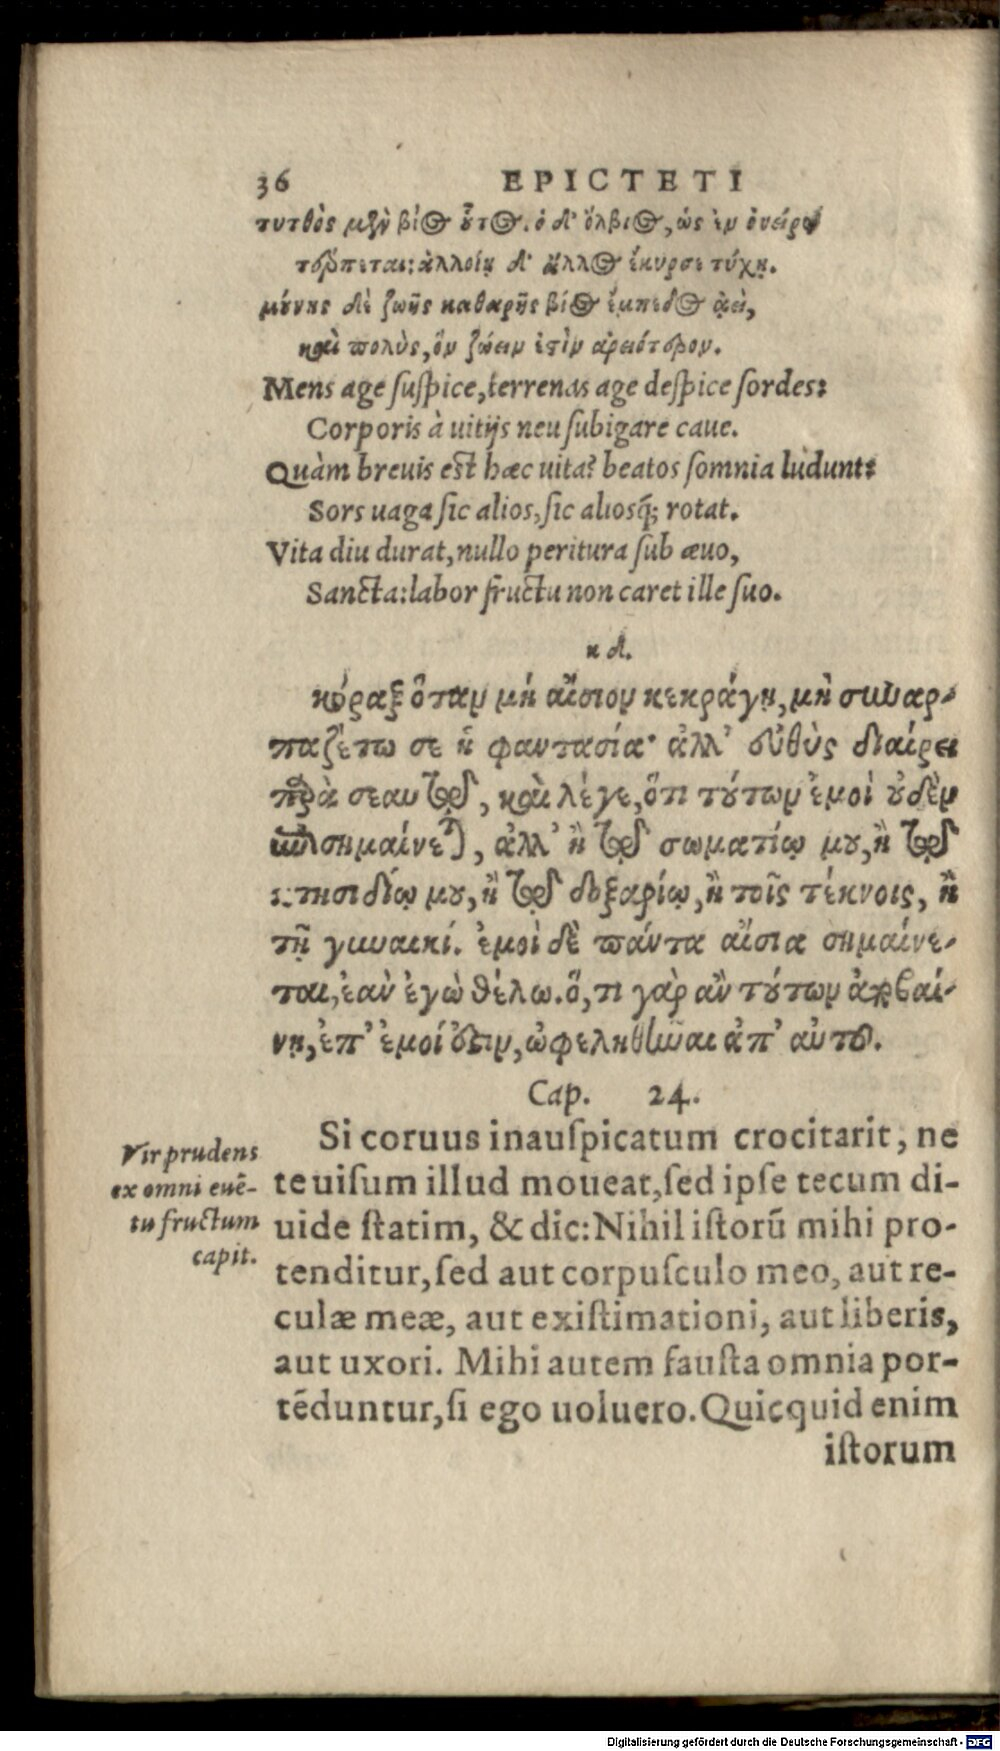 36 EPICTETI
τυτθὸς μὲν βίος οὗτος. ὁ δ' ὄλβιος, ὡς ἐν ὀνείρῳ
τέρπεται: ἀλλοίῃ δ' ἄλλος ἔκυρσε τύχῃ.
μούνης δὲ ζωῆς καθαρῆς βίος ἔμπεδος ἀεὶ,
καὶ πολὺς, ὃν ζώειν ἐστὶν ἀρειότερον.
Mens age ſuſpice, terrenas age deſpice ſordes:
Corporis à uitijs neu ſubigare caue.
Quàm breuis est hæc uita? beatos ſomnia ludunt:
Sors uaga ſic alios, ſic aliosq́; rotat.
Vita diu durat, nullo peritura ſub æuo,
Sancta: labor fructu non caret ille ſuo.
κδ.
κόραξ ὅταν μὴ αἴσιον κεκράγῃ, μὴ συναρ-
παζέτω σε ἡ φαντασία· ἀλλ' εὐθὺς διαίρει
παρὰ σεαυτῷ, καὶ λέγε, ὅτι τούτων ἐμοὶ οὐδὲν
ἐπισημαίνεται, ἀλλ' ἢ τῷ σωματίῳ μου, ἢ τῷ
κτησιδίῳ μου, ἢ τῷ δοξαρίῳ, ἢ τοῖς τέκνοις, ἢ
τῇ γυναικί. ἐμοὶ δὲ πάντα αἴσια σημαίνε-
ται, ἐὰν ἐγὼ θέλω. ὅ, τι γὰρ ἂν τούτων ἀποβαί-
νῃ, ἐπ' ἐμοί ἐστιν, ὠφεληθῆναι ἀπ' αὐτοῦ.
Cap. 24.
Si coruus inauſpicatum crocitarit, ne
te uiſum illud moueat, ſed ipſe tecum di-
uide ſtatim, & dic: Nihil iſtorū mihi pro-
tenditur, ſed aut corpuſculo meo, aut re-
culæ meæ, aut exiſtimationi, aut liberis,
aut uxori. Mihi autem fauſta omnia por-
tēduntur, ſi ego uoluero. Quicquid enim
iſtorum
Vir prudens
ex omni euē-
tu fructum
capit.
Digitalisierung gefördert durch die Deutsche Forschungsgemeinschaft - DFG